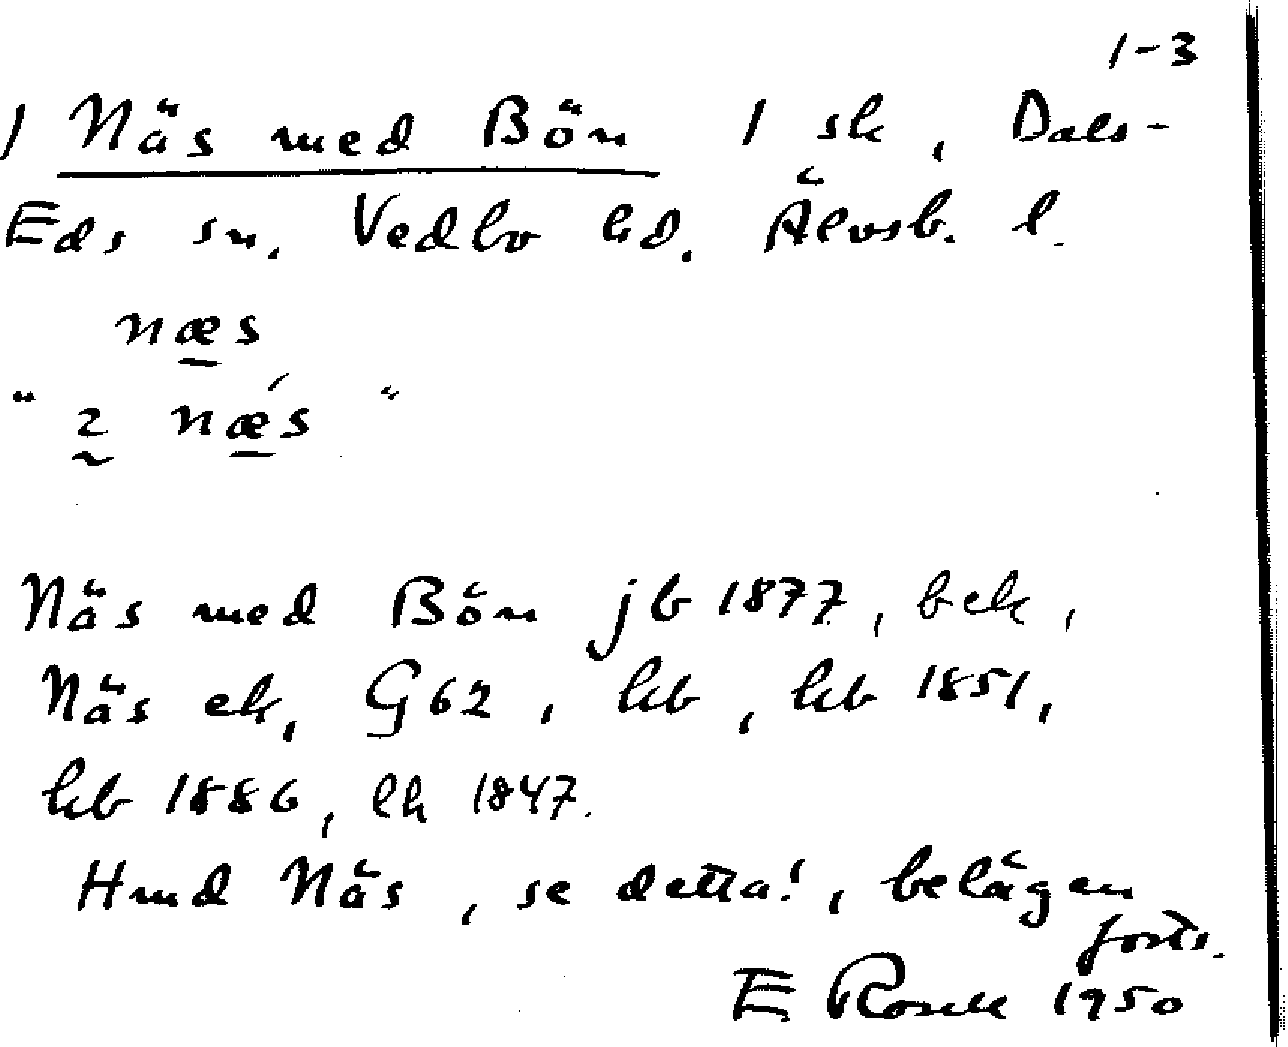 1-3
) Näs med Bön 1 sk, Dals-
Eds sn. Vedbo hd. Älvsb. l.
næs
" 2 næ´s "
Näs med Bön jb 1877, bek,
Näs ek, G62, kb, kb 1851,
kb 1886, lh 1847.
Hmd Näs, se detta!, belägen
forts.
E Rosell 1950